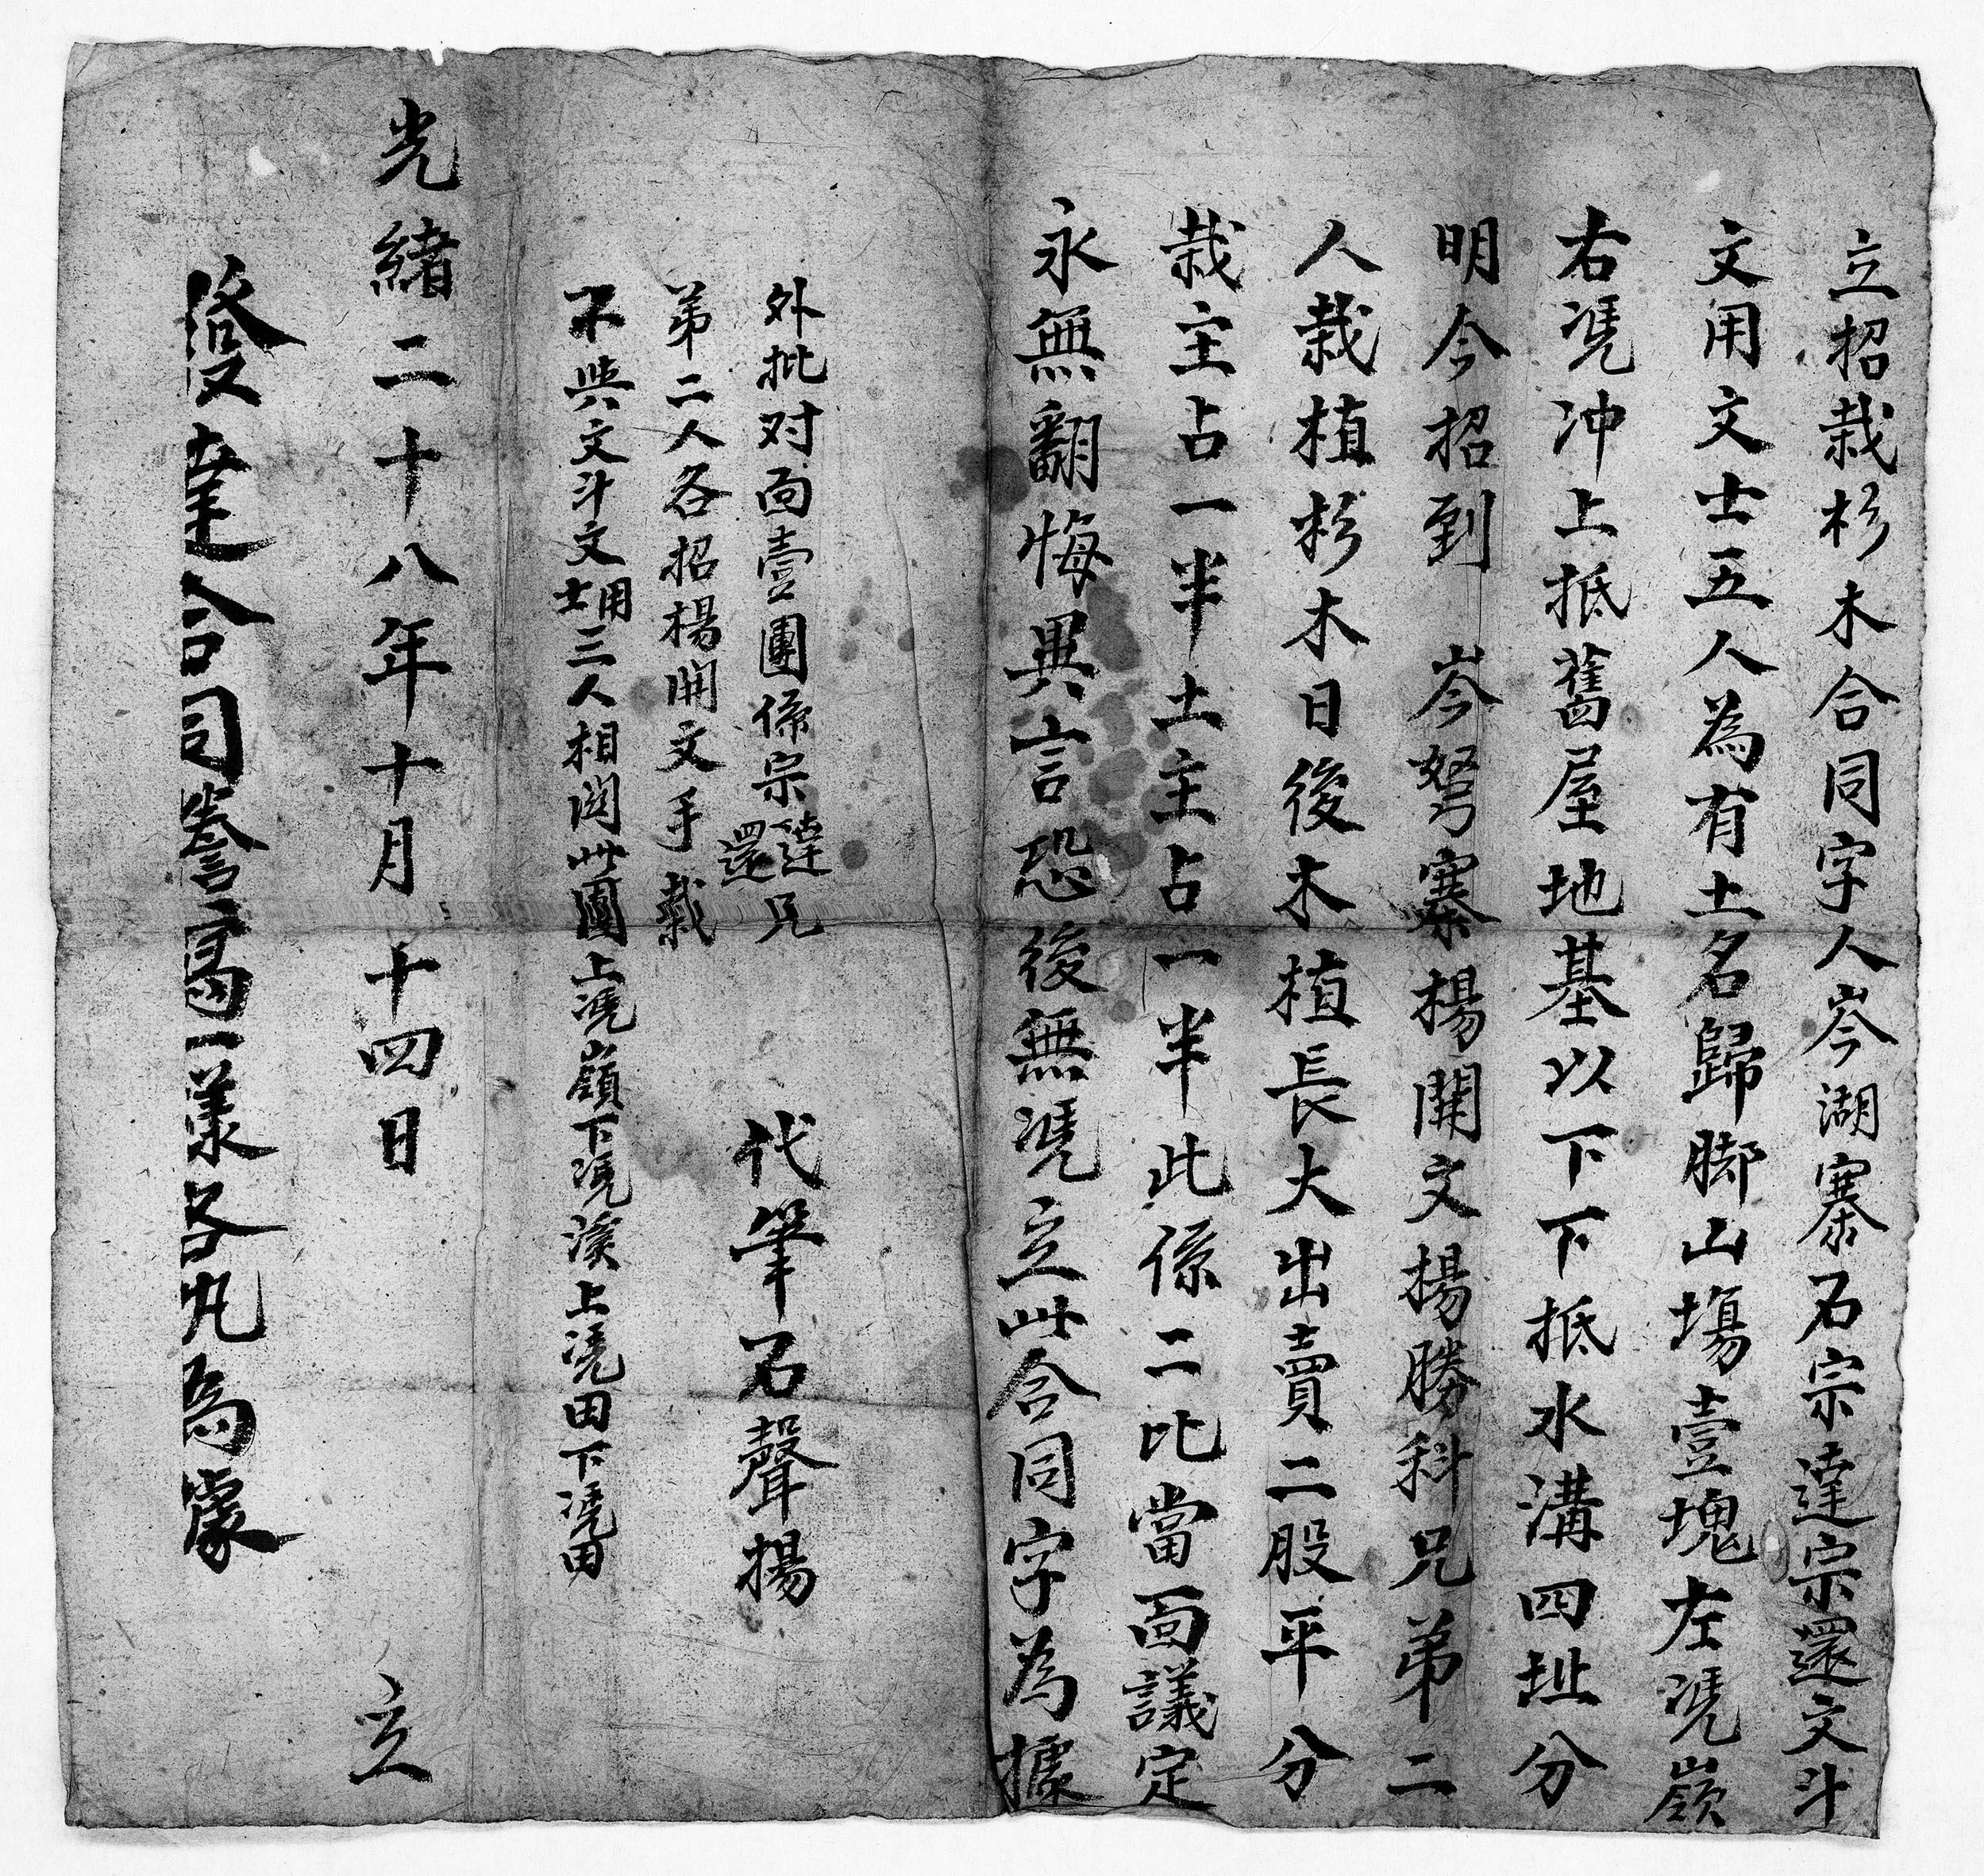 立招栽杉木合同字人岑湖寨石宗達宗還文斗
文用文士五人為有土名歸腳山塲壹塊左凴嶺
右凴冲上抵舊屋地基以下下抵水溝四址分
明今招到 岑弩寨楊開文楊勝科兄弟二
人栽植杉木日後木植長大出賣二股平分
栽主占一半土主占一半此係二比當面議定
永無翻悔異言恐後無凴立此合同字為據
外批对面壹團係宗達還兄
弟二人各招楊開文手栽
不與文斗文用士三人相関此團上凴嶺下凴溪上凴田下凴田
代筆石聲揚
光緒二十八年十月十四日 立
發達合同謄寫一樣各执為據